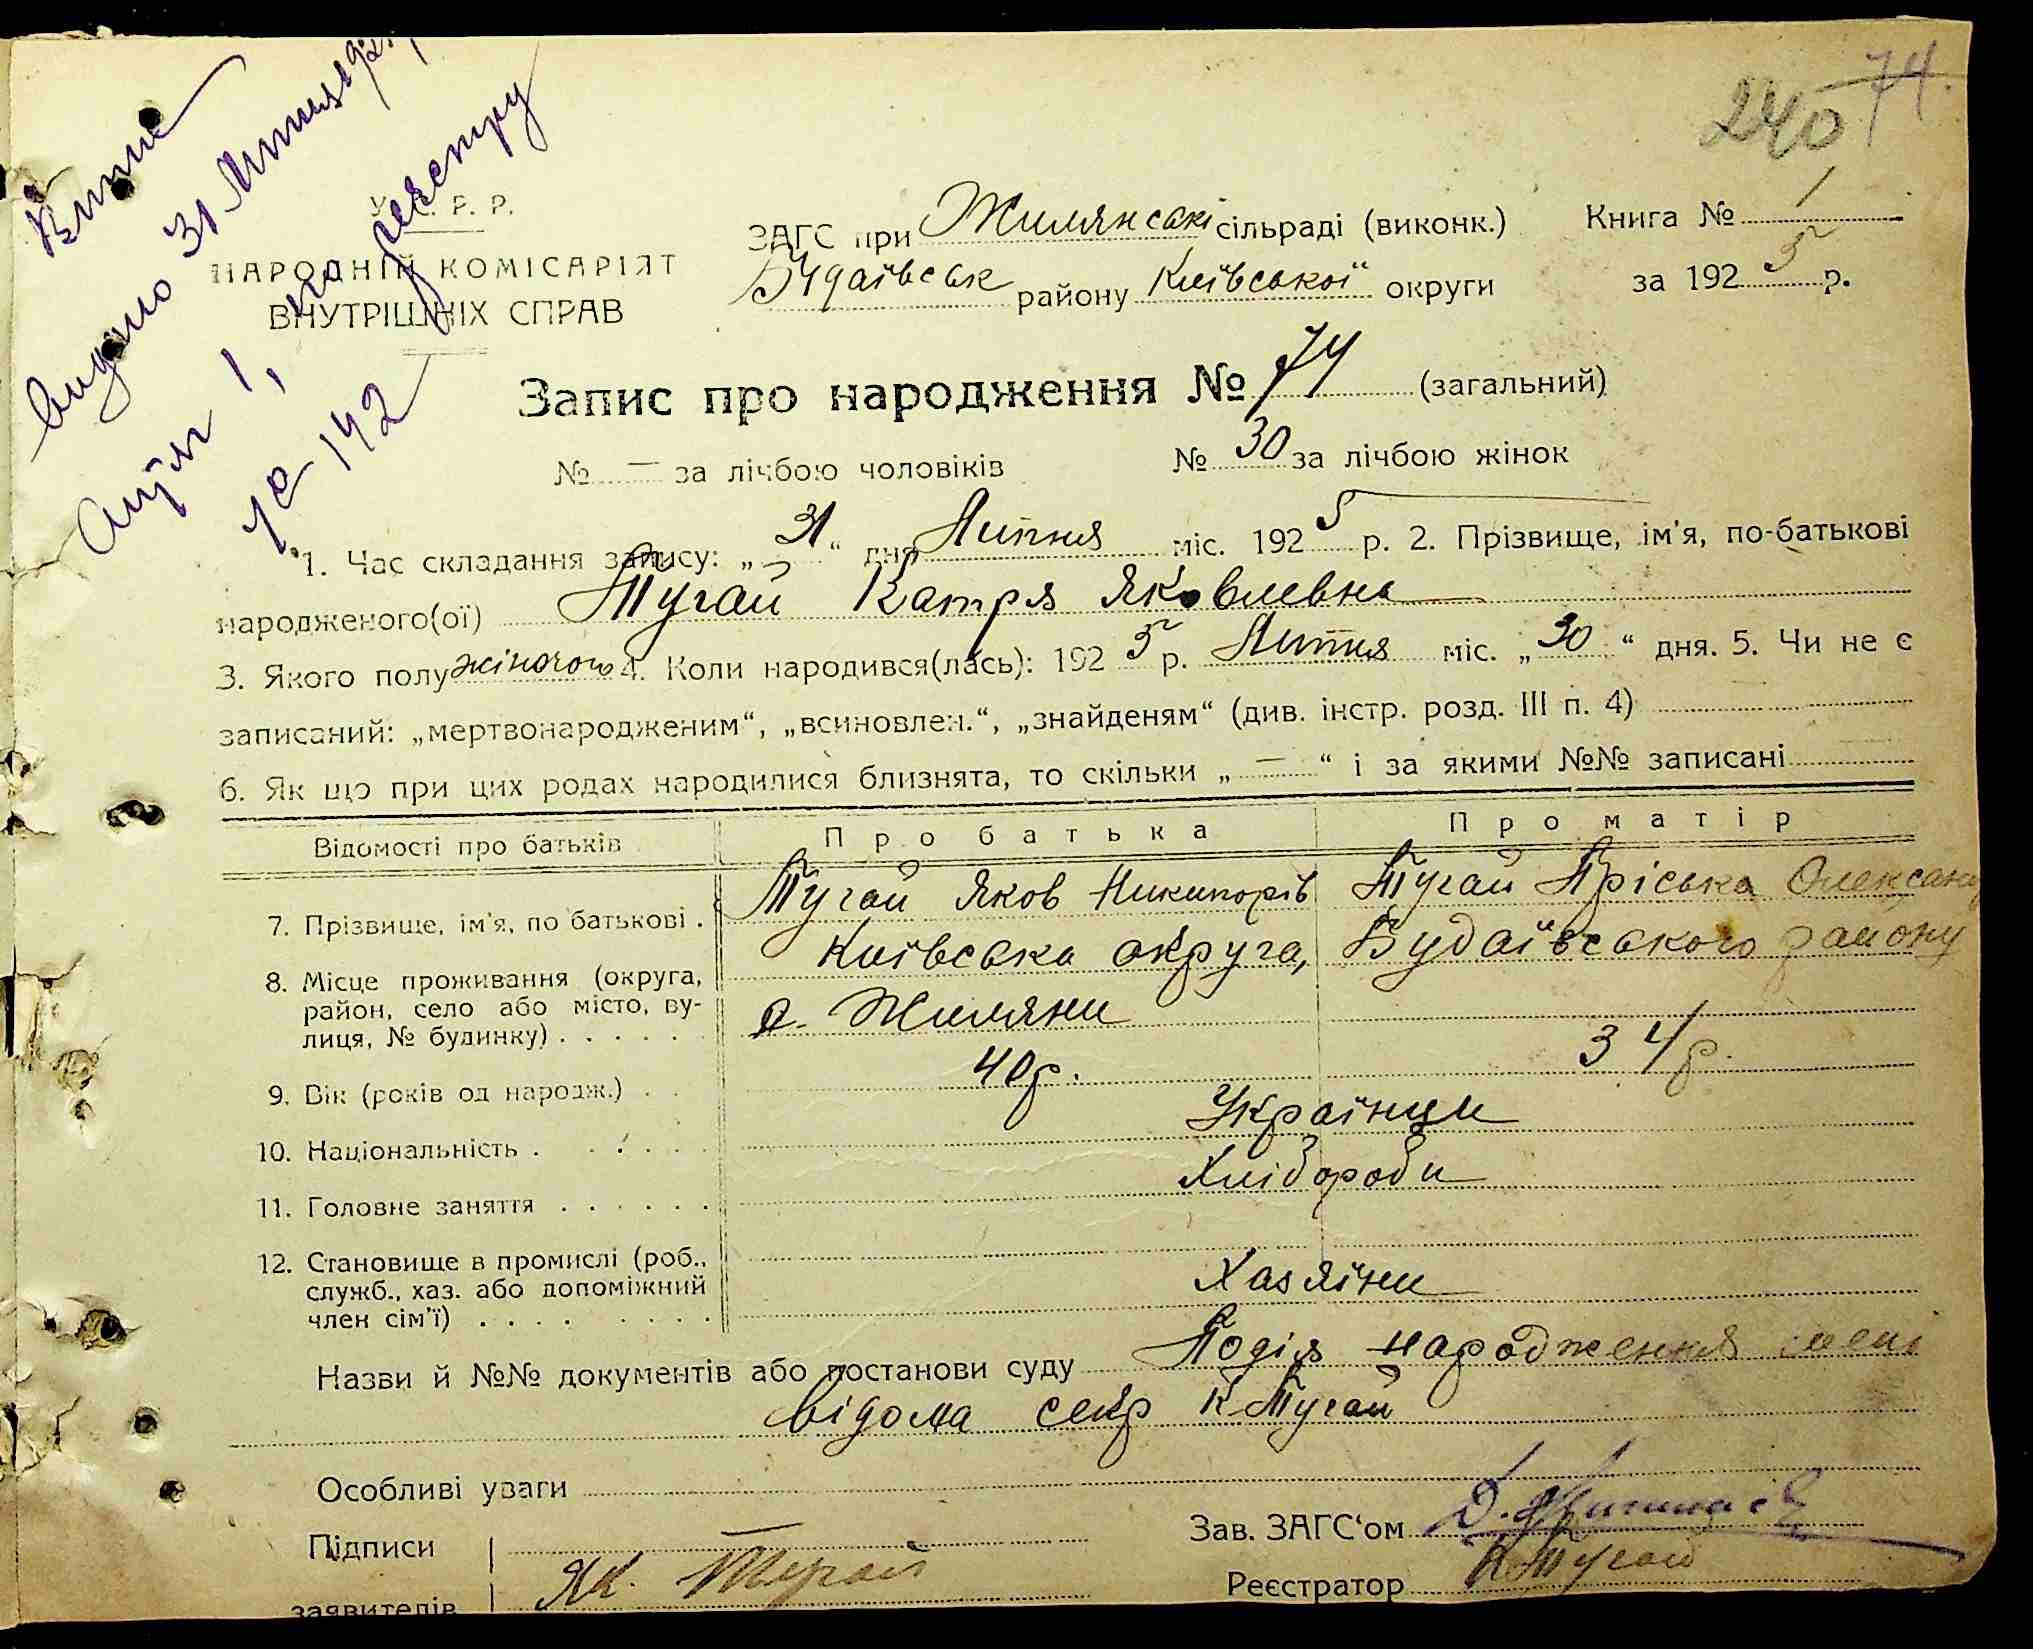 240 74.
Витяг
видано 31 Липня 192
аркуш 1, по реєстру
№ 142
У. С. Р. Р.
НАРОДНІЙ КОМІСАРІЯТ
ВНУТРІШНІХ СПРАВ
ЗАГС при Жилянські сільраді (виконк.) Книга № 1
Будаївськ району Київської округи за 1925 р.
Запис про народження № 74 (загальний)
№ — за лічбою чоловіків № 30 за лічбою жінок
1. Час складання запису: „31“ дня Липня міс. 1925 р. 2. Прізвище, ім'я, по-батькові
народженого(ої) Тугай Катря Яковлевна
3. Якого полу жіночого 4. Коли народився(лась): 1925 р. Липня міс. „30“ дня. 5. Чи не є
записаний: „мертвонародженим“, „всиновлен.“, „знайденям“ (див. інстр. розд. III п. 4)
6. Як що при цих родах народилися близнята, то скільки „—“ і за якими №№ записані
Відомості про батьків Про батька Про матір
7. Прізвище, ім'я, по батькові . Тугай Яков Никипорів Тугай Пріська Олександ
8. Місце проживання (округа, район, село або місто, ву- лиця, № будинку) . . . . . . Київська округа, Будаївського району
с. Жиляни
9. Вік (років од народж.) . . 40 р. 34 р.
10. Національність . . . . . Українци
11. Головне заняття . . . . . . Хлібороби
12. Становище в промислі (роб., служб., хаз. або допоміжний член сім'ї) . . . . . . . . Хазяїни
Назви й №№ документів або постанови суду Подія народження мені
відома секр К Тугай
Особливі уваги
Підписи
заявителів Як. Тугай
Зав. ЗАГС‘ом
Реєстратор К Тугай